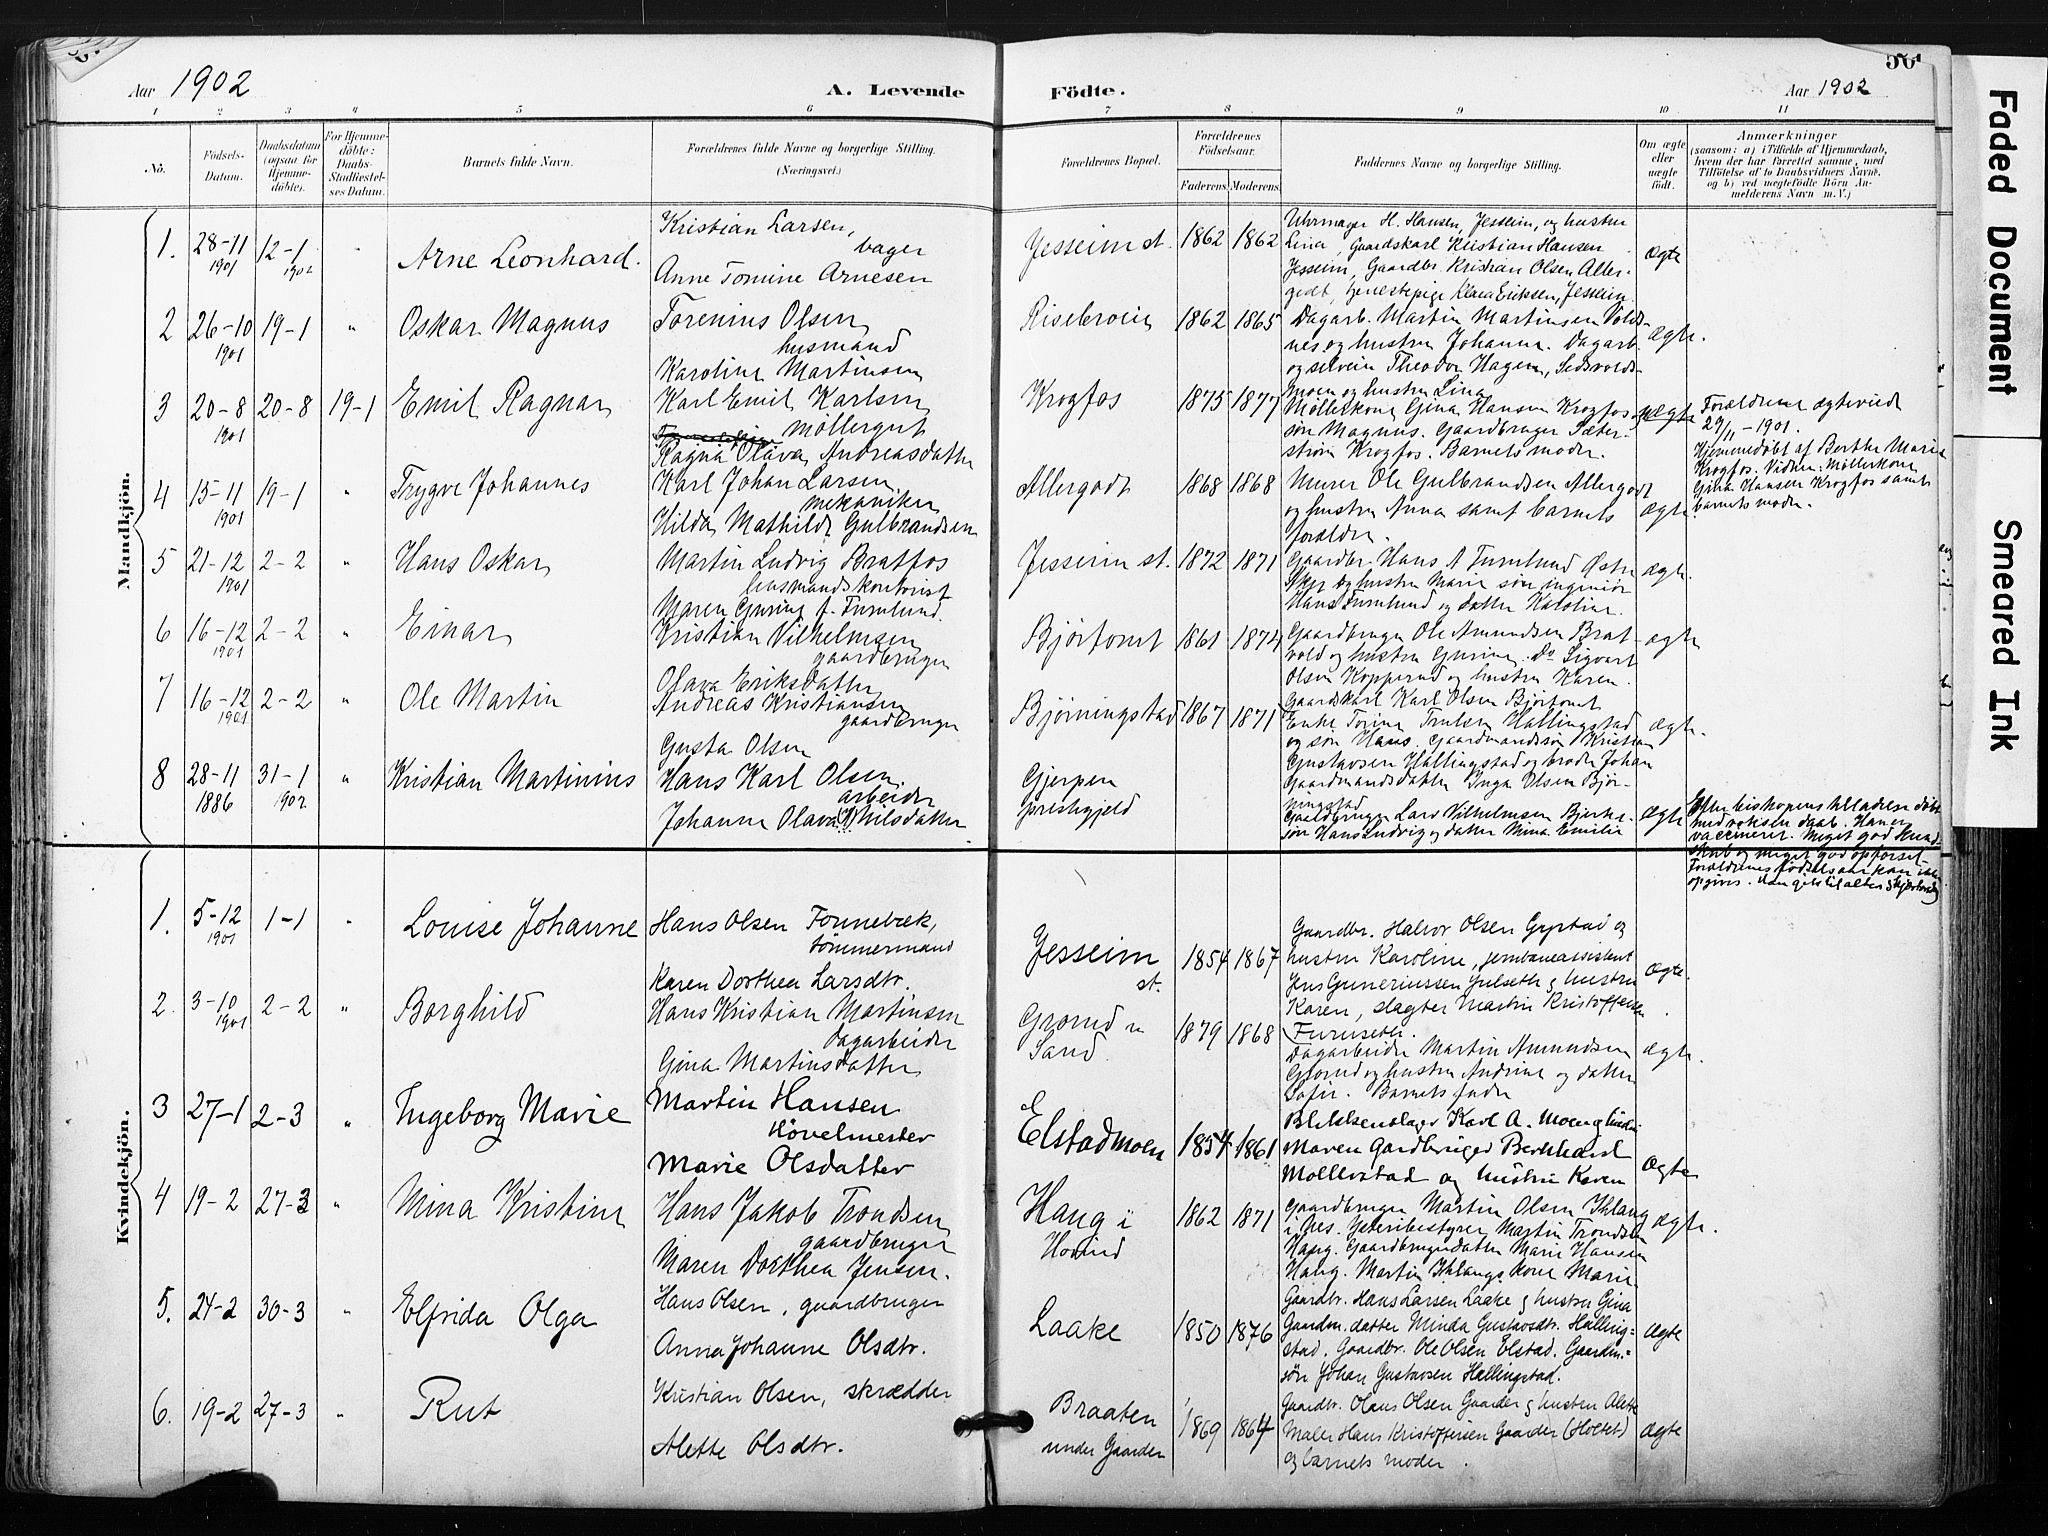 Aar 1902
A. Levende
Födte.
Aar 1902
50
1 2 3 4 5 6 7 8 9 10 11
No.
Födsels-
Datum.
Daabsdatum
(ogsaa for
Hjemme-
döbte).
For Hjemme-
döbte:
Daabs-
Stadfæstel-
ses Datum.
Barnets fulde Navn.
Forældrenes fulde Navne og borgerlige Stilling.
(Næringsvei.)
Forældrenes Bopæl.
Forældrenes
Födselsaar.
Faderens. Moderens.
Faddernes Navne og borgerlige Stilling.
Om ægte
eller
uægte
födt.
Anmærkninger
(saasom: a) i Tilfælde af Hjemmedaab,
hvem der har forrettet samme, med
Tilföielse af to Daabsvidners Navne,
og b) ved uægtefödte Börn An-
melderens Navn m.V.)
Mandkjön.
1. 28-11 1901 12-1 1902 " Arne Leonhard.
Kristian Larsen,
bager
Anne Tomine Arnesen
Jesseim st. 1862 1862
Uhrmager H. Hansen, Jesseim, og hustru
Lina, Gaardskarl Kristian Hansen
Jesseim, Gaardbr. Kristian Olsen Aller-
godt, tjenestepige Klara Eriksen, Jesseim
ægte
2 26-10 1901 19-1 " Oskar Magnus
Torenius Olsen
husmand
Karoline Martinsen
Risebroen 1862 1865
Dagarb. Martin Martinsen Volds-
nes og hustru Johanne. Dagarb.
og selveier Theodor Hagen, Sedsvolds-
moen og hustru Lina
ægte.
3 20-8 1901 20-8 19-1 Emil Ragnar
Karl Emil Karlsen
möllergut
Ragna Olava Andreasdatter
Krogfos 1875 1877
Möllerkone Gina Hansen Krogfos og
søn Magnus. Gaardbruger Sæter-
strøm Krogfos. Barnets moder.
uægte
Forældrene ægteviede
29/11 - 1901.
Hjemmedøbt af Berthe Marie
Krogfos. Vidner: Möllerkone
Gina Hansen Krogfos samt
barnets moder.
4 15-11 1901 19-1 " Trygve Johannes
Karl Johan Larsen
mekaniker
Hilda Mathilde Gulbrandsen
Allergodt 1868 1868
Murer Ole Gulbrandsen Allergodt
og hustru Anna samt barnets
forældre.
ægte
5 21-12 1901 2-2 " Hans Oskar
Martin Ludvig Bratfos
lensmandskontorist
Maren Gurine f. Furulund.
Jesseim st. 1872 1871
Gaardbr. Hans A Furulund Østre
og hustru Marie søn ingeniør
Hans Furulund og datter Karoline.
ægte.
6 16-12 1901 2-2 " Einar
Kristian Vilhelmsen
gaardbruger
Olava Eriksdatter
Bjørtomt 1861 1874
Gaardbruger Ole Amundsen Brat-
vold og hustru Gurine. Do Sigvart
Olsen Kopperud og hustru Karen.
ægte
7 16-12 1901 2-2 " Ole Martin
Andreas Kristiansen
gaardbruger
Gusta Olsen
Bjørningstad 1867 1871
Gaardskarl Karl Olsen Bjørtomt
Enke Torine Trulsen Hallingstad
og søn Hans. Gaardmandssøn Kristian
Gustavsen Hallingstad og broder Johan
Gaardmandsdatter Inga Olsen Bjør-
ningstad
ægte.
8 28-11 1886 31-1 1902 " Kristian Martinius
Hans Karl Olsen
arbeider
Johanne Olava Nilsdatter
Gjerpen
prestegjeld
Gaardbruger Lars Vilhelmsen Bjerke
søn Hans Ludvig og datter Mina Emilie
ægte
Efter biskopens tilladelse døbt
med voksen daab. Han er
vaccineret. Meget god kund-
skab og meget god opførsel.
Forældrenes fødselsaar kan ikke
opgives.
Kvindekjön.
1. 5-12 1901 1-1 " Louise Johanne
Hans Olsen Fonnebæk,
tømmermand
Karen Dorthea Larsdtr.
Jesseim
st. 1854 1867
Gaardbr. Halvor Olsen Gystad og
hustru Karoline, jernbaneassistent
Jens Gunneriussen Julseth og hustru
Karen, slagter Martin Kristoffersen
Furuseth.
ægte.
2. 3-10 1901 2-2 " Borghild
Hans Kristian Martinsen
dagarbeider
Gina Martinsdatter
Grorud
Sand. 1879 1868
Dagarbeider Martin Amundsen
Grorud og hustru Andrine og datter
Sofie. Barnets fader
ægte.
3 27-1 2-3 " Ingeborg Marie
Martin Hansen
Hövelmester
Marie Olsdatter
Elstadmoen 1854 1861
Karl A. Moen og hustru
Maren Gardbruger Bernhard
Mollerstad og hustru Karen
ægte
4 19-2 27-3 " Mina Kristine
Hans Jakob Trondsen
gaardbruger
Maren Dorthea Jensen.
Haug i
Hovind 1862 1871
Gaardbruger Martin Olsen Ihlang
i Nes. Meieribestyrer Martin Trondsen
Haug. Gaardbrugerdatter Marie Hansen
Haug. Martin Ihlangs kone Marie
ægte.
5. 24-2 30-3 " Elfrida Olga
Hans Olsen, gaardbruger
Anna Johanne Olsdtr.
Laake 1850 1876
Gaardbr. Hans Larsen Laake og hustru Gina
Gaardm. datter Minda Gustavsdtr. Halling-
stad. Gaardbr. Ole Olsen Elstad. Gaardm.-
søn Johan Gustavsen Hallingstad.
ægte
6. 19-2 27-3 " Rut
Kristian Olsen, skrædder
Alette Olsdtr.
Braaten
under Gaarder 1869 1864
Gaardbr. Olaus Olsen Gaarder og hustru Alette
Maler Hans Kristoffersen Gaarder (Holtet)
og barnets moder.
ægte
Faded Document
Smeared Ink